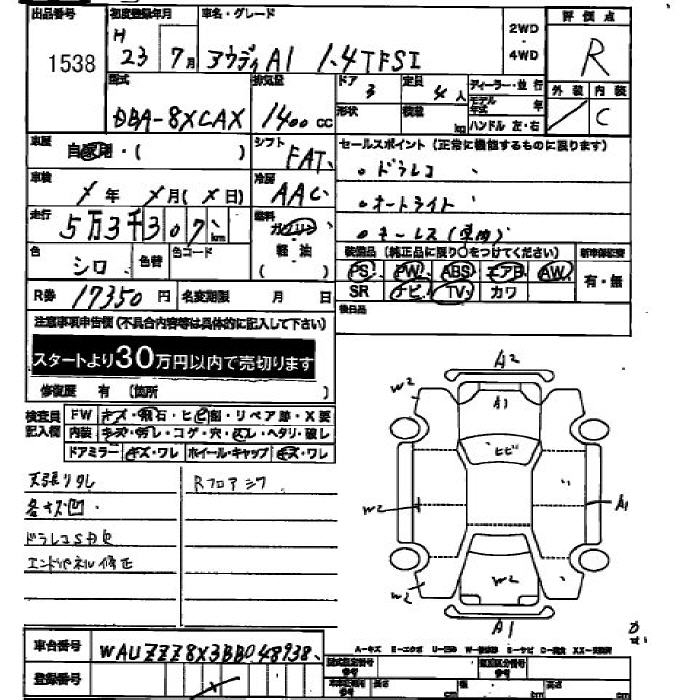 出品番号 初度登録年月 車名・グレード 2WD・4WD 評価点
1538 H23 7月 アウディA1 1.4TFSI R
型式 排気量 ドア 定員 ディーラー・並行 外装 内装
DBA-8XCAX 1400cc 3 4人 モデル年式 年 C
形状 積載 kg ハンドル 左・右
車歴 自家用・( ) シフト FAT セールスポイント (正常に機能するものに限ります)
車検 年 月(X日) 冷房 AAC 。ドラレコ
走行 5万3千307km 燃料 ガソリン・軽油 ( ) 。オートライト
。キーレス(車内)
色 シロ 色替 色コード 装備品 (純正品に限り○をつけてください) 新車保証書
PS PW ABS エアB AW 有・無
R券 17350円 名変期限 月 日 SR ナビ TV カワ
後日品
注意事項申告欄 (不具合内容等は具体的に記入して下さい)
スタートより30万円以内で売切ります
修復歴 有 (箇所 )
検査員記入欄 FW キズ・飛石・ヒビ割・リペア跡・X要
内装 キズ・汚レ・コゲ・穴・スレ・ヘタリ・破レ
ドアミラー キズ・ワレ ホイール・キャップ キズ・ワレ
天張り汚レ Rフロアシワ
各キズ凹
ドラレコS
エンドパネル修正
A2
W2 A1 W2
ヒビ
W2 A1
W2
W2
A1
車台番号 WAUZZZ8X3BB048938
登録番号